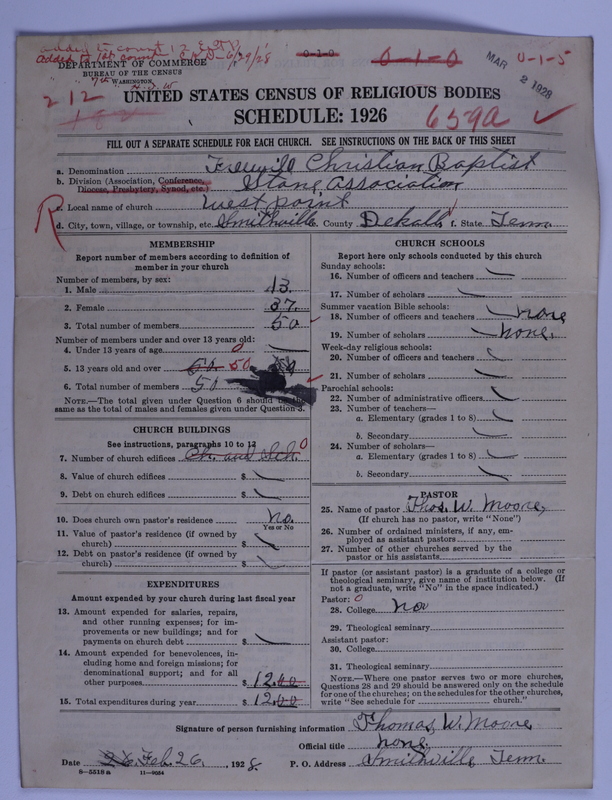 added to count 12
added to 1st count 6/29/28
0-1-0
0-1-0
0-1-5
MAR 2 1928
DEPARTMENT OF COMMERCE
BUREAU OF THE CENSUS
WASHINGTON
212
UNITED STATES CENSUS OF RELIGIOUS BODIES
SCHEDULE: 1926
659a
FILL OUT A SEPARATE SCHEDULE FOR EACH CHURCH. SEE INSTRUCTIONS ON THE BACK OF THIS SHEET
a. Denomination Freewill Christian Baptist
b. Division (Association, Conference, Diocese, Presbytery, Synod, etc.) Stone Association
c. Local name of church West point
d. City, town, village, or township, etc. Smithville e. County Dekalb f. State Tenn
R
MEMBERSHIP
Report number of members according to definition of
member in your church
Number of members, by sex:
1. Male 13
2. Female 37
3. Total number of members 50
Number of members under and over 13 years old:
4. Under 13 years of age 0
5. 13 years old and over 50 50
6. Total number of members 50
NOTE.—The total given under Question 6 should be the
same as the total of males and females given under Question 3.
CHURCH BUILDINGS
See instructions, paragraphs 10 to 12
7. Number of church edifices Ch. and Sch. 0
8. Value of church edifices $
9. Debt on church edifices $
10. Does church own pastor's residence no.
Yes or No
11. Value of pastor's residence (if owned by
church) $
12. Debt on pastor's residence (if owned by
church) $
EXPENDITURES
Amount expended by your church during last fiscal year
13. Amount expended for salaries, repairs,
and other running expenses; for im-
provements or new buildings; and for
payments on church debt $
14. Amount expended for benevolences, in-
cluding home and foreign missions; for
denominational support; and for all
other purposes $ 12.00
15. Total expenditures during year $ 12.00
CHURCH SCHOOLS
Report here only schools conducted by this church
Sunday schools:
16. Number of officers and teachers
17. Number of scholars
Summer vacation Bible schools:
18. Number of officers and teachers none
19. Number of scholars none.
Week-day religious schools:
20. Number of officers and teachers
21. Number of scholars
Parochial schools:
22. Number of administrative officers
23. Number of teachers—
a. Elementary (grades 1 to 8)
b. Secondary
24. Number of scholars—
a. Elementary (grades 1 to 8)
b. Secondary
PASTOR
25. Name of pastor Thos. W. Moore,
(If church has no pastor, write "None")
26. Number of ordained ministers, if any, em-
ployed as assistant pastors
27. Number of other churches served by the
pastor or his assistants
If pastor (or assistant pastor) is a graduate of a college or
theological seminary, give name of institution below. (If
not a graduate, write "No" in the space indicated.)
Pastor: 0
28. College no
29. Theological seminary
Assistant pastor:
30. College
31. Theological seminary
NOTE.—Where one pastor serves two or more churches,
Questions 28 and 29 should be answered only on the schedule
for one of the churches; on the schedules for the other churches,
write "See schedule for church."
Signature of person furnishing information Thomas W. Moore
Official title none
Date 26 Feb. 26, 1928. P. O. Address Smithville Tenn.
8-5518a 11-9054